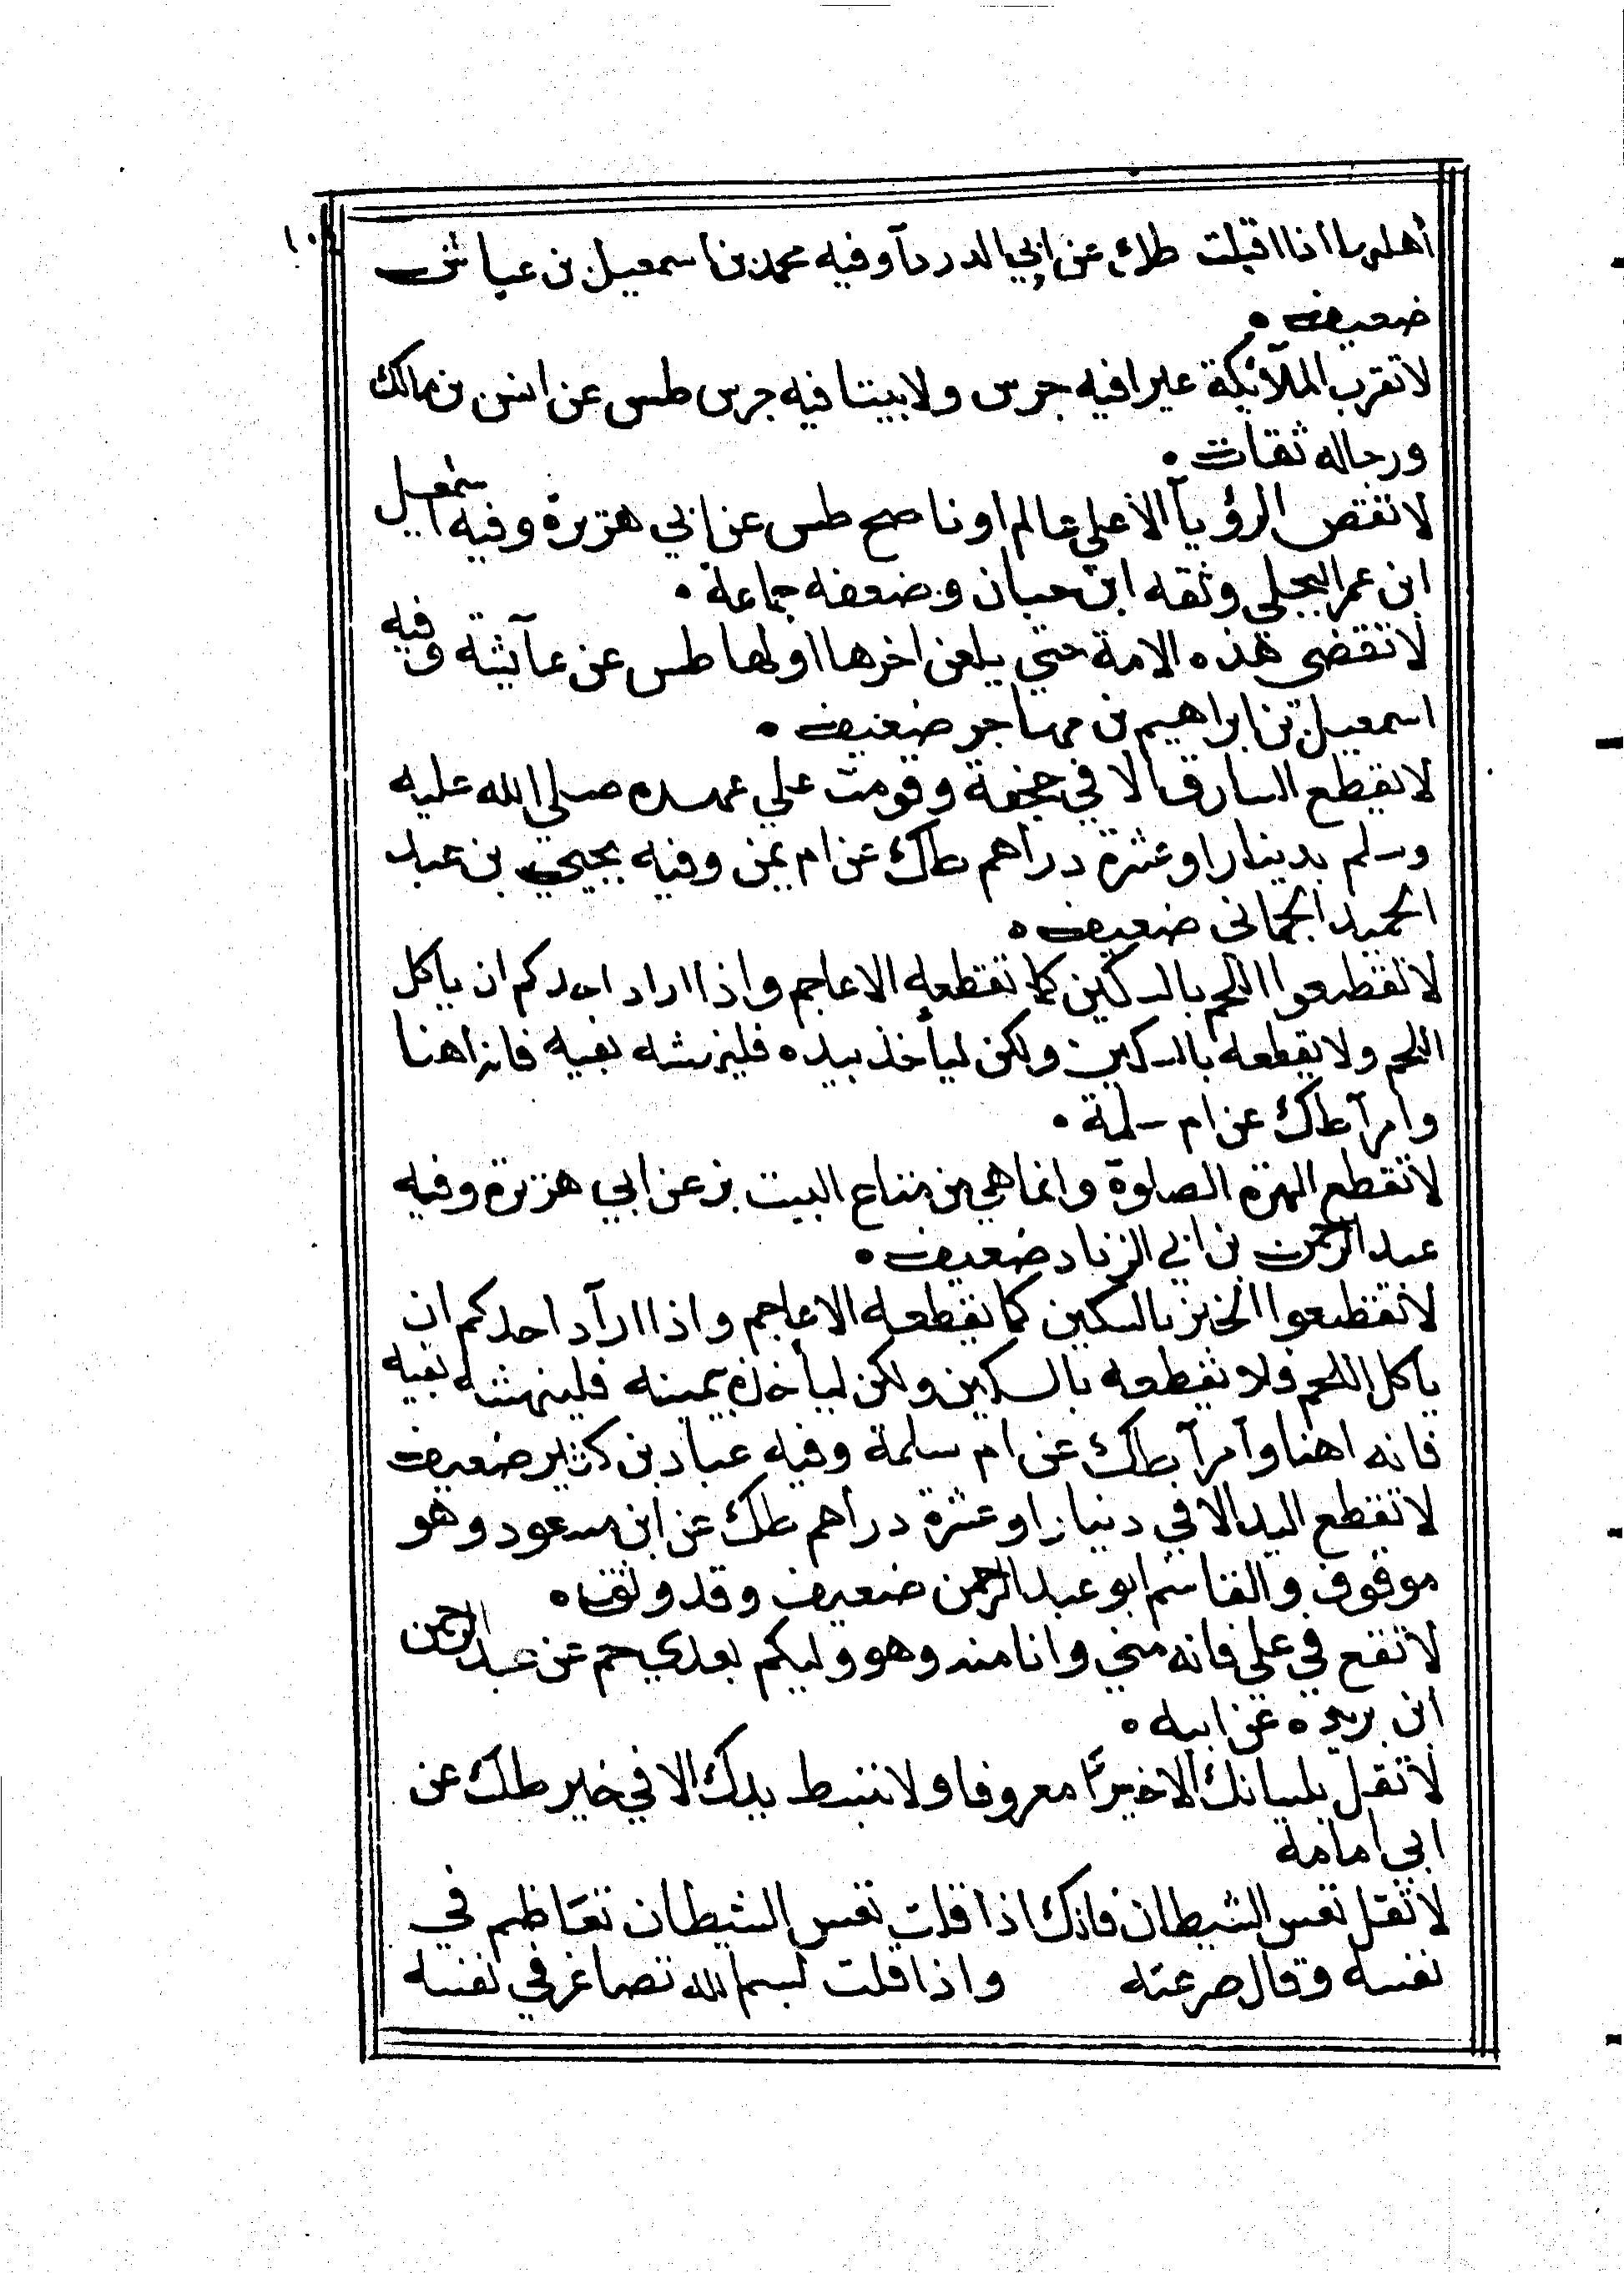 أهلها اذا اقبلت طك عن ابي الدردآ وفيه محمد بن اسمعيل بن عياش
ضعيف
لا تقرب الملآئكة عيرا فيه جرس ولا بيتا فيه جرس طس عن انس بن مالك
ورجاله ثقات
لا تقص الرؤيآ الا علي عالم او ناصح طس عن ابي هريرة وفيه اسمعيل
ابن عمر البجلي وثقه ابن حبان وضعفه جماعة
لا تقضى هذه الامة حتي يلعن اخرها اولها طس عن عآئشة وفيه
اسمعيل بن ابراهيم بن مهاجر ضعيف
لا تقطع السارق الا في حجفة وقومت علي عهده صلي الله عليه
وسلم بدينار او عشرة دراهم طك عن ام يمن وفيه يحيي بن عبد
الحميد الحماني ضعيف
لا تقطعوا اللحم بالسكين كما تقطعه الاعاجم واذا اراد احدكم ان ياكل
اللحم ولا يقطعه بالسكين ولكن ليأخذ بيده فلينهشه بفيه فانه اهنا
وامرآ طك عن ام سلمة
لا تقطع الهرة الصلوة وانما هي من متاع البيت بز عن ابي هريرة وفيه
عبد الرحمن بن ابي الزناد ضعيف
لا تقطعوا الخبز بالسكين كما تقطعه الاعاجم واذا ارآد احدكم ان
ياكل اللحم فلا يقطعه بالسكين ولكن ليأخذه بيمينه فلينهشه بفيه
فانه اهنا وآمرآ طك عن ام سلمة وفيه عباد بن كثير ضعيف
لا تقطع اليد الا في دينار او عشرة دراهم طك عن ابن مسعود وهو
موقوف والقاسم ابو عبد الرحمن ضعيف وقد وثق
لا تقع في علي فانه مني وانا منه وهو وليكم بعدي حم عن عبد الرحمن
ابن بريدة عن ابيه
لا تقل بلسانك الا خيرًا معروفا ولا تبسط يدك الا في خير طك عن
ابي امامة
لا تقل تعس الشيطان فانك اذا قلت تعس الشيطان تعاظم في
نفسه وقال صرعته واذا قلت بسم الله تصاغر في نفسه